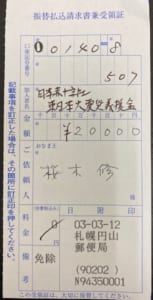 振替払込請求書兼受領証
口座記号番号
00140-8
507
加入者名
日本赤十字社
東日本大震災義援金
金額
¥20000
ご依頼人
おなまえ
桜木 修
料金
(消費税込み)
0
円
日附印
03-03-12
札幌円山
郵便局
備考
免除
(90202)
N94350001
記載事項を訂正した場合は、その箇所に訂正印を押してください。